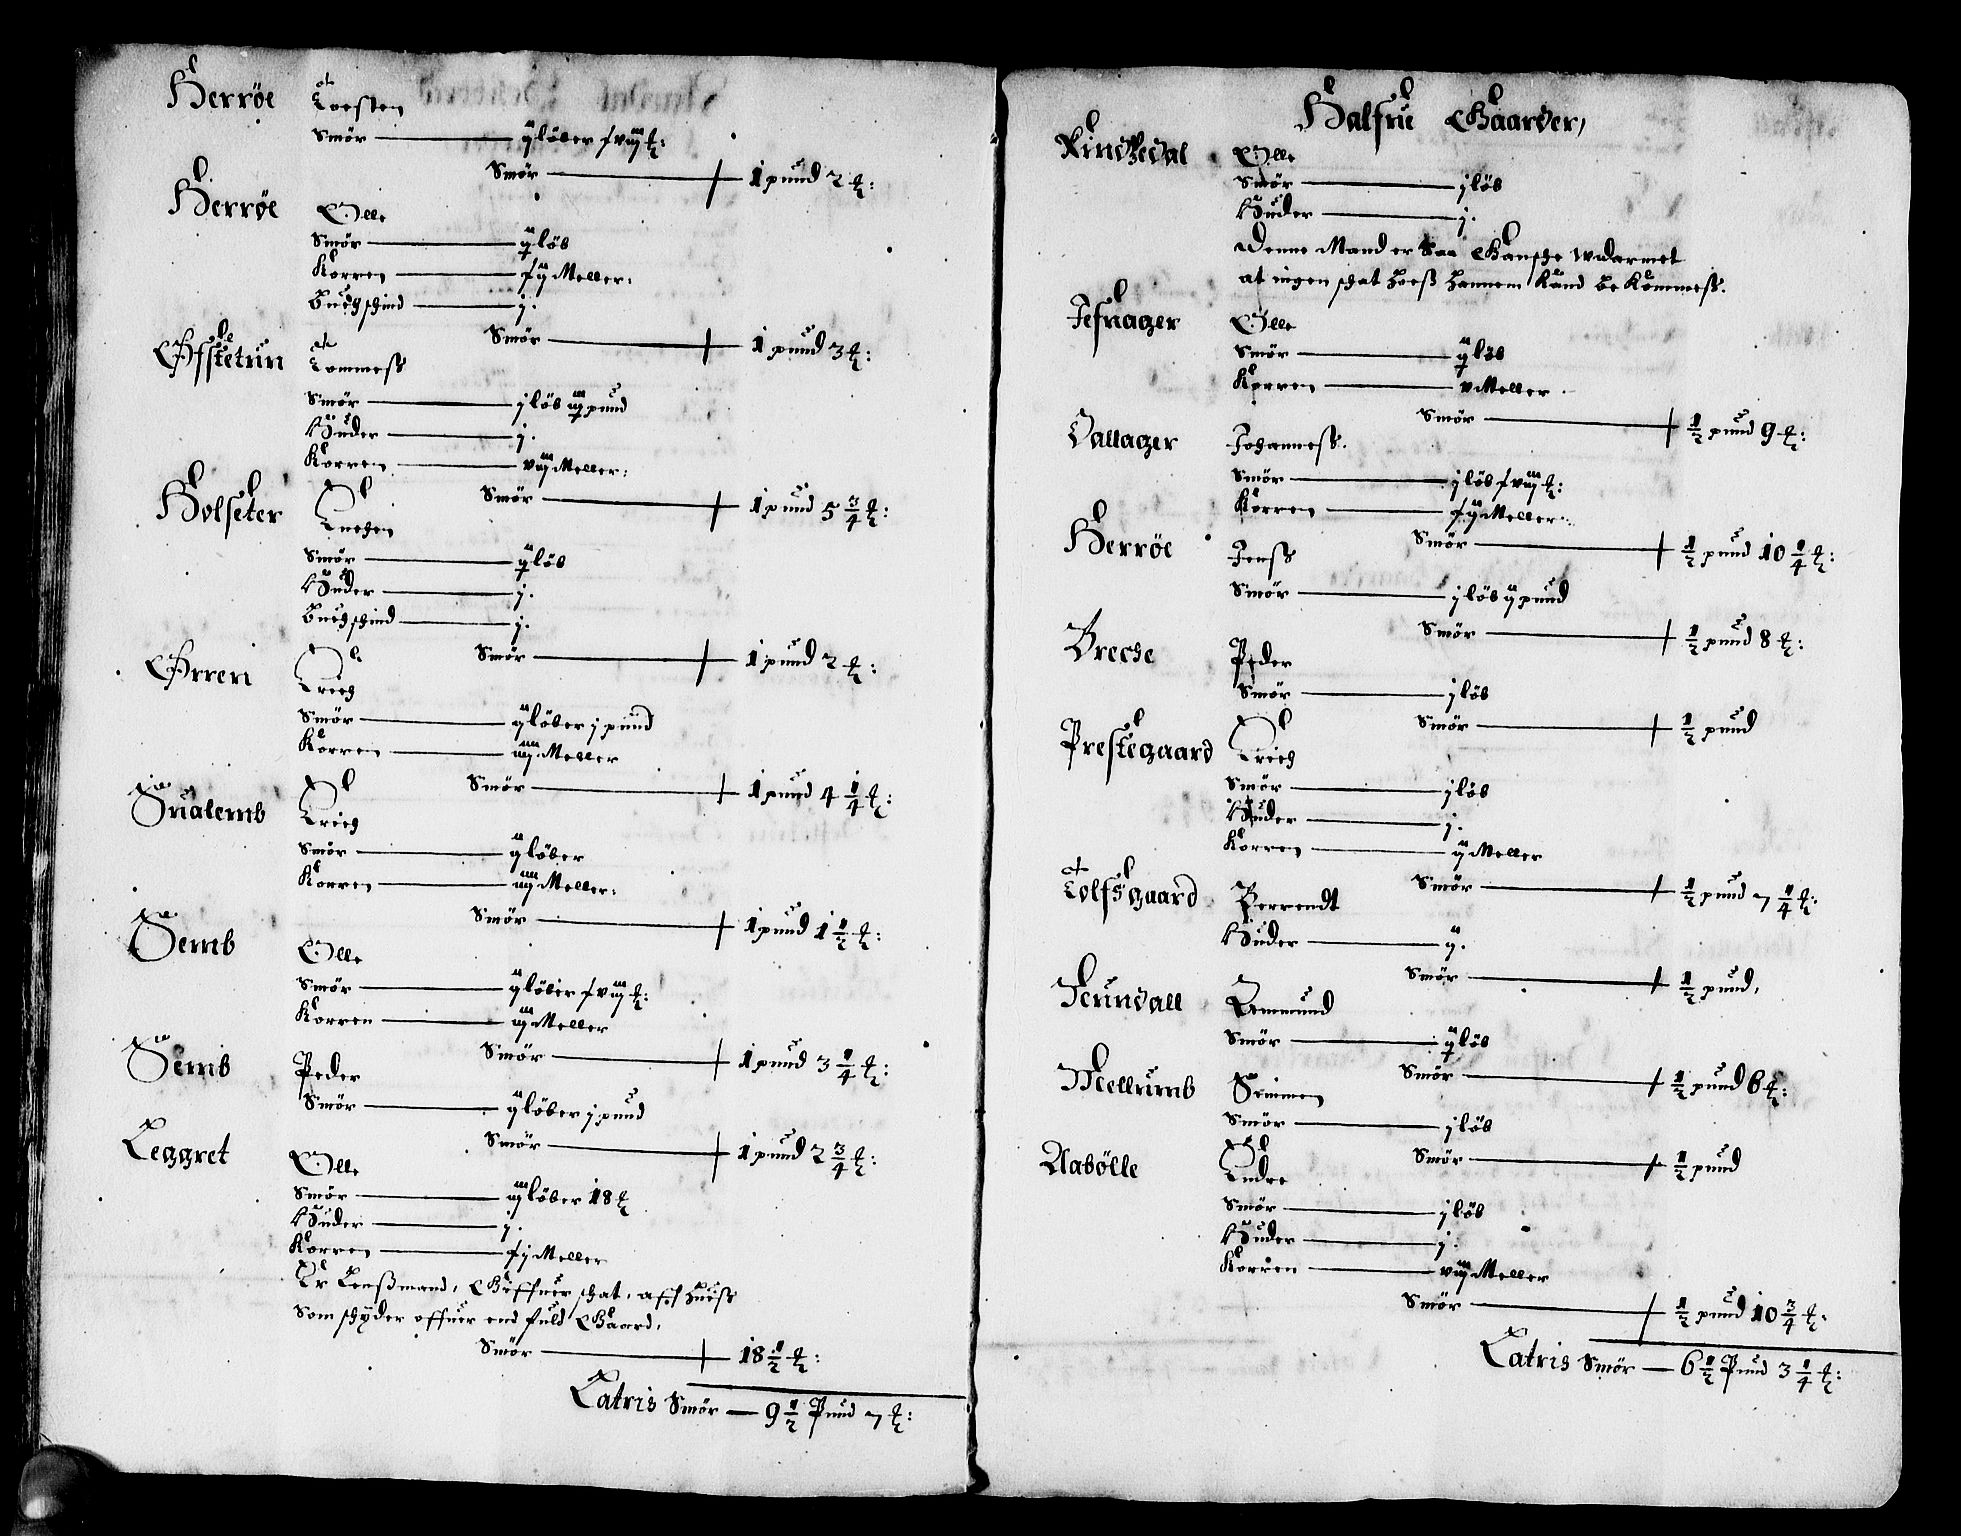 Herröe Torsten
Smör — ij löber f viij ℔:
Smör — 1 pund 2 ℔:
Herröe Olle
Smör — ij löb
Korren — f ij Meller:
Buch schind — j.
Smör — 1 pund 3 ℔:
Offstetun Tommess
Smör — j löb iij pund
Huder — j.
Korren — viij Meller:
Smör — 1 pund 5 3/4 ℔:
Holseter
Smör — ij löb
Huder — j.
Buch schind — j.
Smör — 1 pund 2 ℔:
Orren Erich
Smör — ij löber j pund
Korren — iiij Meller
Smör — 1 pund 4 1/4 ℔:
Sualemb Erich
Smör — ij löber
Korren — iiij Meller:
Smör — 1 pund 1 1/2 ℔:
Semb Olle
Smör — ij löber f viij ℔:
Korren — iij Meller
Smör — 1 pund 3 1/4 ℔:
Semb Peder
Smör — ij löber j pund
Smör — 1 pund 2 3/4 ℔:
Leggret Olle
Smör — iij löber 18 ℔
Huder — j.
Korren — f j Meller
Er Lenßmand, Giffuer schat, aff huess
Som schyder offuer end fuld Gaard,
Smör — 18 1/2 ℔:
Latris Smör — 9 1/2 Pund 7 ℔:
Halfue Gaarder,
Rindzedal Olle
Smör — j löb
Huder — j.
Denne Mand er Saa Gansche Wdarmet
at ingen schat hoess hannem Kand be Kommess.
Jefnager Olle
Smör — ij löb
Korren — v Meller
Smör — 1/2 pund 9 ℔:
Vallager Johanness.
Smör — j löb f viij ℔:
Korren — f ij Meller:
Smör — 1/2 pund 10 1/4 ℔:
Herröe Jenss
Smör — j löb ij pund
Smör — 1/2 pund 8 ℔:
Breche Peder
Smör — j löb
Smör — 1/2 pund
Prestegaard Erich
Smör — j löb
Huder — j.
Korren — ij Meller
Smör — 1/2 pund 7 1/4 ℔:
Tolfsgaard Berrendt
Huder — ij.
Smör — 1/2 pund,
Teundall Ammund
Smör — ij löb
Smör — 1/2 pund 6 ℔:
Mellumb Simmen
Smör — j löb
Smör — 1/2 pund
Aabölle Endre
Smör — j löb
Huder — j:
Korren — viij Meller
Smör — 1/2 pund 10 3/4 ℔:
Latris Smör — 6 1/2 Pund 3 1/4 ℔: